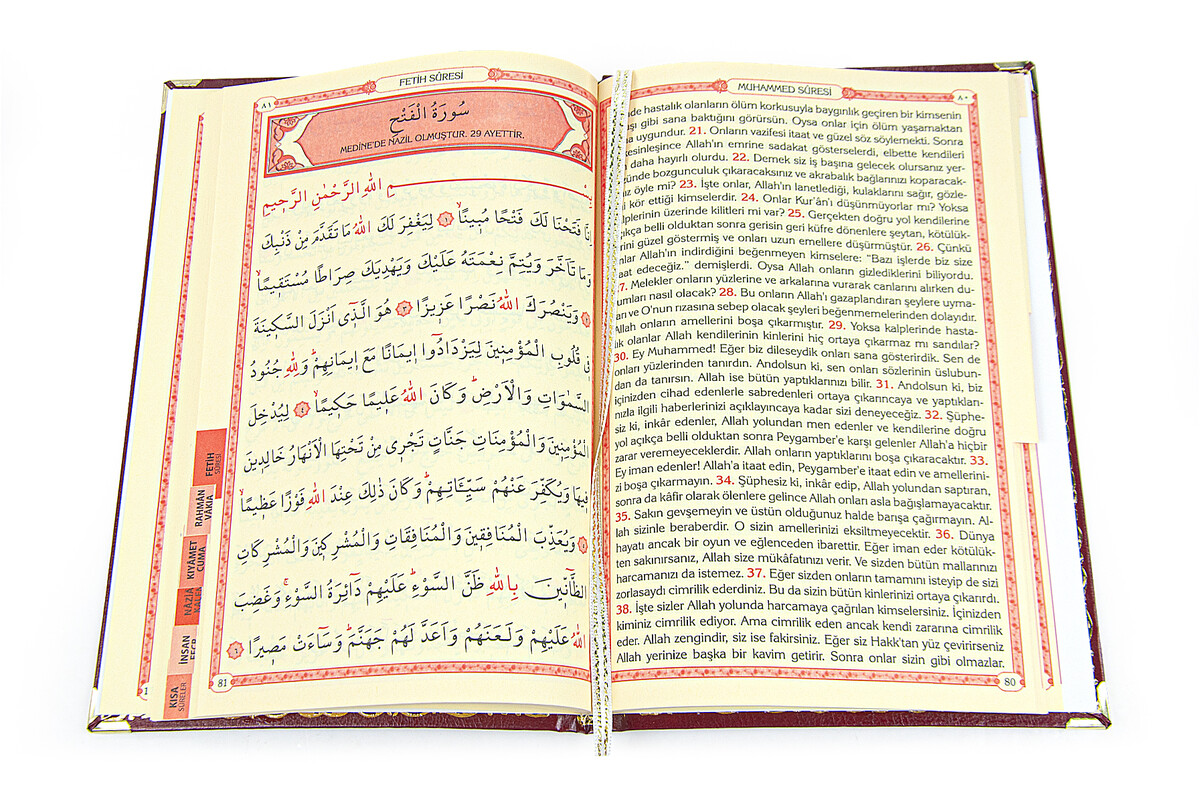 FETİH SÛRESİ
٨١
سُورَةُ الْفَتْحِ
MEDİNE'DE NAZİL OLMUŞTUR. 29 AYETTİR.
بِسْمِ اللهِ الرَّحْمٰنِ الرَّحِيمِ
اِنَّا فَتَحْنَا لَكَ فَتْحًا مُبِينًاۙ ﴿١﴾ لِيَغْفِرَ لَكَ اللهُ مَا تَقَدَّمَ مِنْ ذَنْبِكَ
وَمَا تَاَخَّرَ وَيُتِمَّ نِعْمَتَهُ عَلَيْكَ وَيَهْدِيَكَ صِرَاطًا مُسْتَقِيمًاۙ
﴿٢﴾ وَيَنْصُرَكَ اللهُ نَصْرًا عَزِيزًا ﴿٣﴾ هُوَ الَّذِٓي اَنْزَلَ السَّكِينَةَ
فِي قُلُوبِ الْمُؤْمِنِينَ لِيَزْدَادُٓوا اِيمَانًا مَعَ اِيمَانِهِمْۜ وَلِلّٰهِ جُنُودُ
السَّمٰوَاتِ وَالْاَرْضِۜ وَكَانَ اللهُ عَلِيمًا حَكِيمًاۙ ﴿٤﴾ لِيُدْخِلَ
الْمُؤْمِنِينَ وَالْمُؤْمِنَاتِ جَنَّاتٍ تَجْرِي مِنْ تَحْتِهَا الْاَنْهَارُ خَالِدِينَ
فِيهَا وَيُكَفِّرَ عَنْهُمْ سَيِّـَٔاتِهِمْۜ وَكَانَ ذٰلِكَ عِنْدَ اللهِ فَوْزًا عَظِيمًاۙ
﴿٥﴾ وَيُعَذِّبَ الْمُنَافِقِينَ وَالْمُنَافِقَاتِ وَالْمُشْرِكِينَ وَالْمُشْرِكَاتِ
الظَّٓانِّينَ بِاللهِ ظَنَّ السَّوْءِۜ عَلَيْهِمْ دَٓائِرَةُ السَّوْءِۚ وَغَضِبَ
اللهُ عَلَيْهِمْ وَلَعَنَهُمْ وَاَعَدَّ لَهُمْ جَهَنَّمَۜ وَسَٓاءَتْ مَصِيرًا ﴿٦﴾
81
FETİH
SÛRESİ
RAHMÂN
VÂKIA
KIYÂMET
CUMA
İNSAN
KISA
SÛRELER
MUHAMMED SÛRESİ
٨٠
de hastalık olanların ölüm korkusuyla baygınlık geçiren bir kimsenin
gibi sana baktığını görürsün. Oysa onlar için ölüm yaşamaktan
uygundur. 21. Onların vazifesi itaat ve güzel söz söylemekti. Sonra
kesinleşince Allah'ın emrine sadakat gösterselerdi, elbette kendileri
daha hayırlı olurdu. 22. Demek siz iş başına gelecek olursanız yer-
yüzünde bozgunculuk çıkaracaksınız ve akrabalık bağlarınızı koparacak-
öyle mi? 23. İşte onlar, Allah'ın lanetlediği, kulaklarını sağır, gözle-
kör ettiği kimselerdir. 24. Onlar Kur'ân'ı düşünmüyorlar mı? Yoksa
kalplerinin üzerinde kilitleri mi var? 25. Gerçekten doğru yol kendilerine
açıkça belli olduktan sonra gerisin geri küfre dönenlere şeytan, kötülük-
lerini güzel göstermiş ve onları uzun emellere düşürmüştür. 26. Çünkü
onlar Allah'ın indirdiğini beğenmeyen kimselere: "Bazı işlerde biz size
itaat edeceğiz." demişlerdi. Oysa Allah onların gizlediklerini biliyordu.
27. Melekler onların yüzlerine ve arkalarına vurarak canlarını alırken du-
rumları nasıl olacak? 28. Bu onların Allah'ı gazaplandıran şeylere uyma-
ları ve O'nun rızasına sebep olacak şeyleri beğenmemelerinden dolayıdır.
Allah onların amellerini boşa çıkarmıştır. 29. Yoksa kalplerinde hasta-
lık olanlar Allah kendilerinin kinlerini hiç ortaya çıkarmaz mı sandılar?
30. Ey Muhammed! Eğer biz dileseydik onları sana gösterirdik. Sen de
onları yüzlerinden tanırdın. Andolsun ki, sen onları sözlerinin üslubun-
dan da tanırsın. Allah ise bütün yaptıklarınızı bilir. 31. Andolsun ki, biz
içinizden cihad edenlerle sabredenleri ortaya çıkarıncaya ve yaptıkları-
nızla ilgili haberlerinizi açıklayıncaya kadar sizi deneyeceğiz. 32. Şüphe-
siz ki, inkâr edenler, Allah yolundan men edenler ve kendilerine doğru
yol açıkça belli olduktan sonra Peygamber'e karşı gelenler Allah'a hiçbir
zarar veremeyeceklerdir. Allah onların yaptıklarını boşa çıkaracaktır. 33.
Ey iman edenler! Allah'a itaat edin, Peygamber'e itaat edin ve amellerini-
zi boşa çıkarmayın. 34. Şüphesiz ki, inkâr edip, Allah yolundan saptıran,
sonra da kâfir olarak ölenlere gelince Allah onları asla bağışlamayacaktır.
35. Sakın gevşemeyin ve üstün olduğunuz halde barışa çağırmayın. Al-
lah sizinle beraberdir. O sizin amellerinizi eksiltmeyecektir. 36. Dünya
hayatı ancak bir oyun ve eğlenceden ibarettir. Eğer iman eder kötülük-
ten sakınırsanız, Allah size mükâfatınızı verir. Ve sizden bütün mallarınızı
harcamanızı da istemez. 37. Eğer sizden onların tamamını isteyip de sizi
zorlasaydı cimrilik ederdiniz. Bu da sizin bütün kinlerinizi ortaya çıkarırdı.
38. İşte sizler Allah yolunda harcamaya çağrılan kimselersiniz. İçinizden
kiminiz cimrilik ediyor. Ama cimrilik eden ancak kendi zararına cimrilik
eder. Allah zengindir, siz ise fakirsiniz. Eğer siz Hakk'tan yüz çevirirseniz
Allah yerinize başka bir kavim getirir. Sonra onlar sizin gibi olmazlar.
80